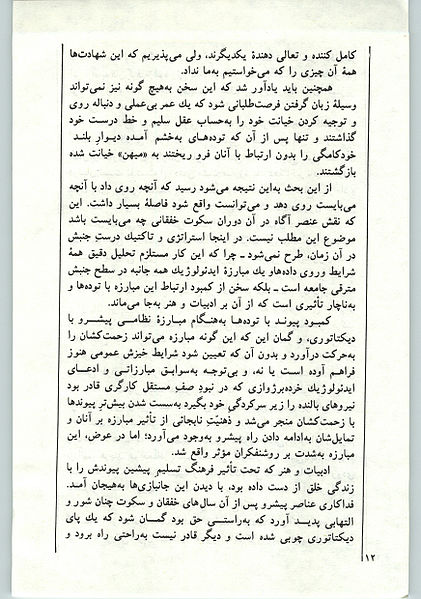 کامل کننده و تعالی دهندهٔ یکدیگرند، ولی می‌پذیریم که این شهادت‌ها
همهٔ آن چیزی را که می‌خواستیم به‌ما نداد.
همچنین باید یادآور شد که این سخن به‌هیچ گونه نیز نمی‌تواند
وسیلهٔ زبان گرفتن فرصت‌طلبانی شود که یك عمر بی‌عملی و دنباله روی
و توجیه کردن خیانت خود را به‌حساب عقل سلیم و خط درست خود
گذاشتند و تنها پس از آن که توده‌های به‌خشم آمده دیوار بلند
خودکامگی را بدون ارتباط با آنان فرو ریختند به «میهن» خیانت شده
بازگشتند.
از این بحث به‌این نتیجه می‌شود رسید که آنچه روی داد با آنچه
می‌بایست روی دهد و می‌توانست واقع شود فاصلهٔ بسیار داشت. این
که نقش عنصر آگاه در آن دوران سکوت خفقانی چه می‌بایست باشد
موضوع این مطلب نیست. در اینجا استراتژی و تاکتیك درستِ جنبش
در آن زمان، طرح نمی‌شود ـ چرا که این کار مستلزم تحلیل دقیق همهٔ
شرایط وروی داده‌هاو یك مبارزهٔ ایدئولوژیك همه جانبه در سطح جنبش
مترقی جامعه است ـ بلکه سخن از کمبود ارتباط این مبارزه با توده‌ها و
به‌ناچار تأثیری است که از آن بر ادبیات و هنر به‌جا می‌ماند.
کمبود پیوند با توده‌ها به‌هنگام مبارزهٔ نظامی پیشرو با
دیکتاتوری، و گمان این که این گونه مبارزه می‌تواند زحمت‌کشان را
به‌حرکت درآورد و بدون آن که تعیین شود شرایط خیزش عمومی هنوز
فراهم آوده است یا نه، و بی‌توجه به‌سوابق مبارزاتی و ادعای
ایدئولوژیك خرده‌برژوازی که در نبودِ صفِ مستقل کارگری قادر بود
نیروهای بالنده را زیر سرکردگی خود بگیرد به‌سست شدن بیش‌تر پیوندها
با زحمت‌کشان منجر می‌شد و ذهنیّتِ نابجائی از تأثیر مبارزه بر آنان و
تمایل‌شان به‌ادامه دادن راه پیشرو به‌وجود می‌آورد؛ اما در عوض، این
مبارزه به‌شدت بر روشنفکران مؤثر واقع شد.
ادبیات و هنر که تحت تأثیر فرهنگ تسلیم پیشین پیوندش را با
زندگی خلق از دست داده بود، با دیدن این جانبازی‌ها به‌هیجان آمد.
فداکاری عناصر پیشرو پس از آن سال‌های خفقان و سکوت چنان شور و
التهابی پدید آورد که به‌راستی حق بود گمان شود که یك پای
دیکتاتوری چوبی شده است و دیگر قادر نیست به‌راحتی راه برود و
۱۲